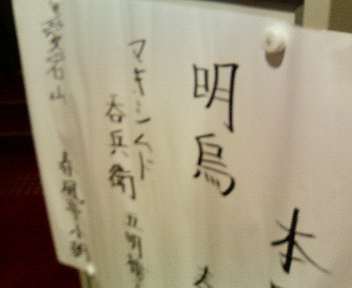 本
明烏
マキシムド
呑兵衛 五明樓
愛宕山 春風亭小朝